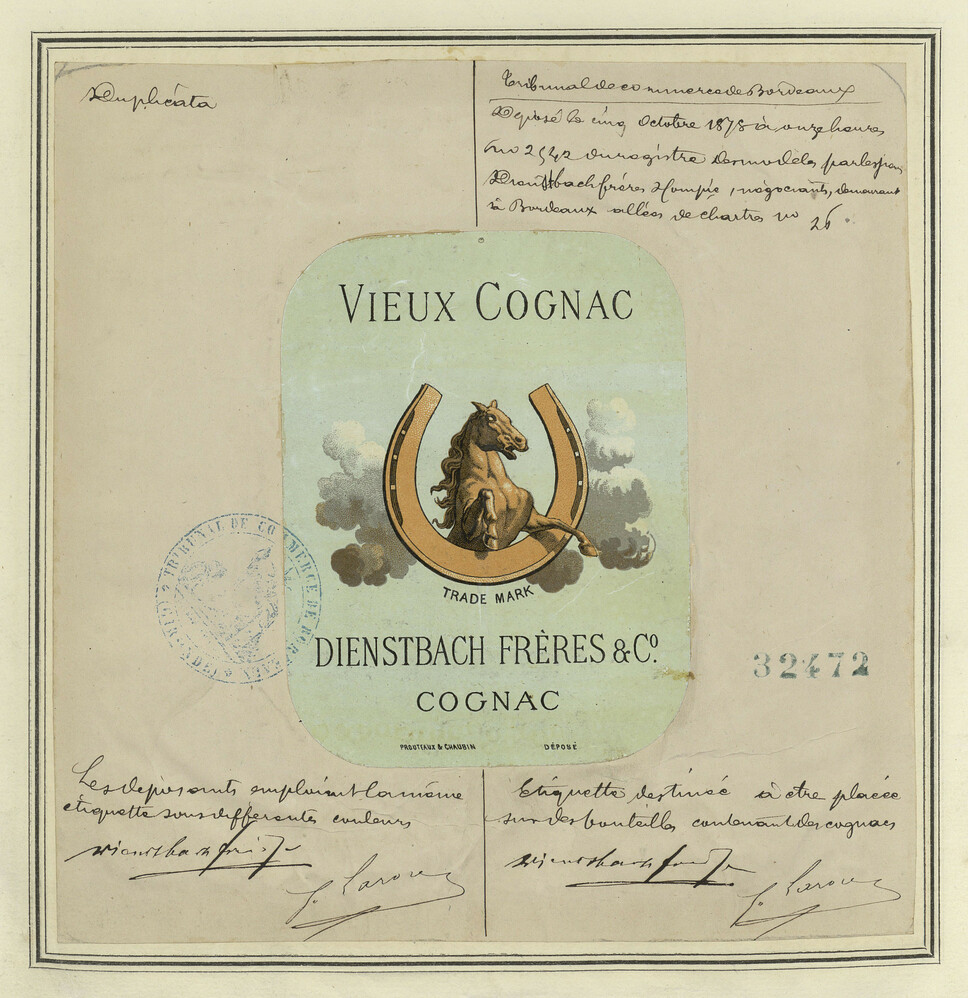 Duplicata
Tribunal de commerce de Bordeaux
Déposé le cinq octobre 1878 à onze heures
no 2542 du registre des modèles par les sieurs
Dienstbach frères & Compie, négociants, demeurant
à Bordeaux allées de chartres no 26.
VIEUX COGNAC
TRADE MARK
DIENSTBACH FRÈRES & Co.
COGNAC
PROUTEAUX & CHAUBIN DÉPOSÉ
TRIBUNAL DE COMMERCE DE BORDEAUX
32472
Les déposants emploient la même
étiquette sous différentes couleurs
Dienstbach frères
Etiquette destinée à être placée
sur des bouteilles contenant des cognacs
Dienstbach frères